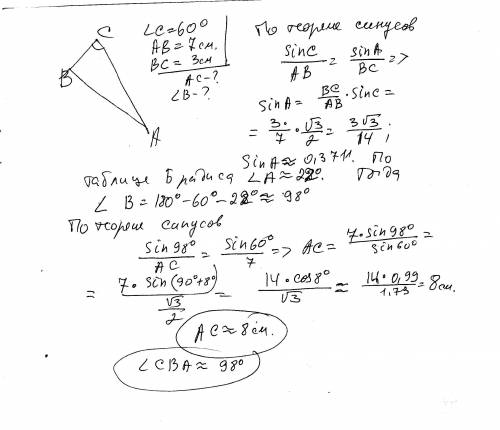 C
B
A
∠C=60°
AB = 7см.
BC = 3см
AC-?
∠B-?
По теореме синусов
sinC/AB = sinA/BC =>
sinA = BC/AB · sinC =
= 3/7 · √3/2 = 3√3/14 ;
SinA ≈ 0,3711. По
таблице Брадиса ∠A ≈ 22°. Тогда
∠ B = 180° - 60° - 22° ≈ 98°
По теореме синусов
Sin98°/AC = Sin60°/7 => AC = 7·sin98°/sin60° =
= 7·sin(90°+8°)/(√3/2) = 14·cos8°/√3 ≈ 14·0,99/1,73 = 8см.
AC ≈ 8см.
∠CBA ≈ 98°